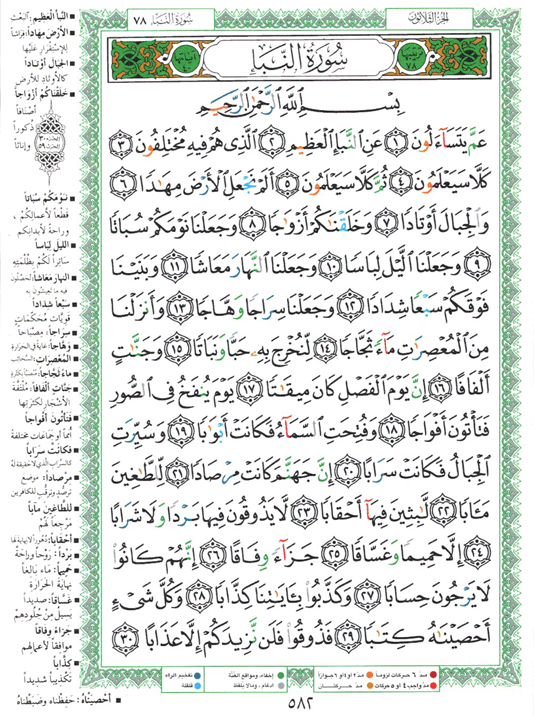 الجزء الثلاثون
سورة النبإ ٧٨
سورة النبإ
بسم الله الرحمن الرحيم
عَمَّ يَتَسَآءَلُونَ ١ عَنِ ٱلنَّبَإِ ٱلْعَظِيمِ ٢ ٱلَّذِى هُمْ فِيهِ مُخْتَلِفُونَ ٣
كَلَّا سَيَعْلَمُونَ ٤ ثُمَّ كَلَّا سَيَعْلَمُونَ ٥ أَلَمْ نَجْعَلِ ٱلْأَرْضَ مِهَٰدًا ٦
وَٱلْجِبَالَ أَوْتَادًا ٧ وَخَلَقْنَٰكُمْ أَزْوَٰجًا ٨ وَجَعَلْنَا نَوْمَكُمْ سُبَاتًا
٩ وَجَعَلْنَا ٱلَّيْلَ لِبَاسًا ١٠ وَجَعَلْنَا ٱلنَّهَارَ مَعَاشًا ١١ وَبَنَيْنَا
فَوْقَكُمْ سَبْعًا شِدَادًا ١٢ وَجَعَلْنَا سِرَاجًا وَهَّاجًا ١٣ وَأَنزَلْنَا
مِنَ ٱلْمُعْصِرَٰتِ مَآءً ثَجَّاجًا ١٤ لِّنُخْرِجَ بِهِۦ حَبًّا وَنَبَاتًا ١٥ وَجَنَّٰتٍ
أَلْفَافًا ١٦ إِنَّ يَوْمَ ٱلْفَصْلِ كَانَ مِيقَٰتًا ١٧ يَوْمَ يُنفَخُ فِى ٱلصُّورِ
فَتَأْتُونَ أَفْوَاجًا ١٨ وَفُتِحَتِ ٱلسَّمَآءُ فَكَانَتْ أَبْوَٰبًا ١٩ وَسُيِّرَتِ
ٱلْجِبَالُ فَكَانَتْ سَرَابًا ٢٠ إِنَّ جَهَنَّمَ كَانَتْ مِرْصَادًا ٢١ لِّلطَّٰغِينَ
مَـَٔابًا ٢٢ لَّٰبِثِينَ فِيهَآ أَحْقَابًا ٢٣ لَّا يَذُوقُونَ فِيهَا بَرْدًا وَلَا شَرَابًا
٢٤ إِلَّا حَمِيمًا وَغَسَّاقًا ٢٥ جَزَآءً وِفَاقًا ٢٦ إِنَّهُمْ كَانُوا۟
لَا يَرْجُونَ حِسَابًا ٢٧ وَكَذَّبُوا۟ بِـَٔايَٰتِنَا كِذَّابًا ٢٨ وَكُلَّ شَىْءٍ
أَحْصَيْنَٰهُ كِتَٰبًا ٢٩ فَذُوقُوا۟ فَلَن نَّزِيدَكُمْ إِلَّا عَذَابًا ٣٠
النبأ العظيم: البعث
الأرض مهاداً: فراشاً
للاستقرار عليها
الجبال أوتاداً
كالأوتاد للأرض
خلقناكم أزواجاً
أصنافاً
ذكوراً
وإناثاً
نومكم سباتاً
قطعاً لأعمالكم،
وراحة لأبدانكم
الليل لباساً
ساتراً لكم بظلمته
النهار معاشاً
سبعاً شداداً
قويات محكمات
سراجاً: مصباحاً
وهاجاً
المعصرات
ماء ثجاجاً
جنات ألفافاً: ملتفة
الأشجار لكثرتها
فتأتون أفواجاً
أمماً أو جماعات مختلفة
فكانت سراباً
مرصاداً: موضع
ترصد وترقب للكافرين
للطاغين مآباً
مرجعاً لهم
أحقاباً
برداً
حميماً: ماء بالغاً
نهاية الحرارة
غساقاً: صديداً
يسيل من جلودهم
جزاء وفاقاً
موافقاً لأعمالهم
كذاباً
تكذيباً شديداً
أحصيناه: حفظناه وضبطناه
مد ٦ حركات لزوماً
مد ٢ أو ٤ أو ٦ جوازاً
إخفاء، ومواقع الغنة
تفخيم الراء
مد واجب ٤ أو ٥ حركات
مد حركتان
ادغام، وما لا يلفظ
قلقلة
٥٨٢